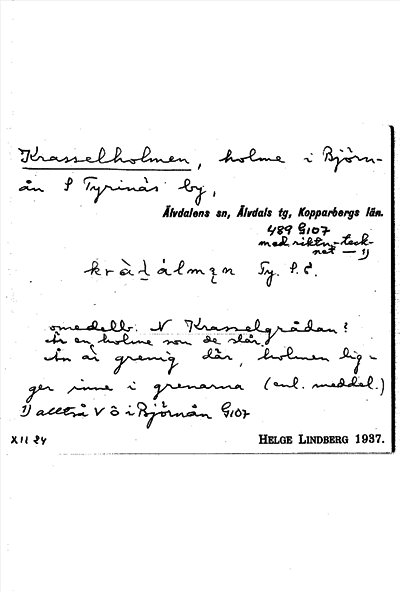 Krasselholmen, holme i Björn-
ån S Tyrinäs by,
Älvdalens sn, Älvdals tg, Kopparbergs län.
489 G107
med riktn.-teck-
net — 1)
Ty. S.E.
omedelb. N Krasselgrådan?
Är en holme som de slår.
Ån är grenig där, holmen lig-
ger inne i grenarna (enl. meddel.)
1) alltså V ö i Björnån G107
XII 24
HELGE LINDBERG 1937.